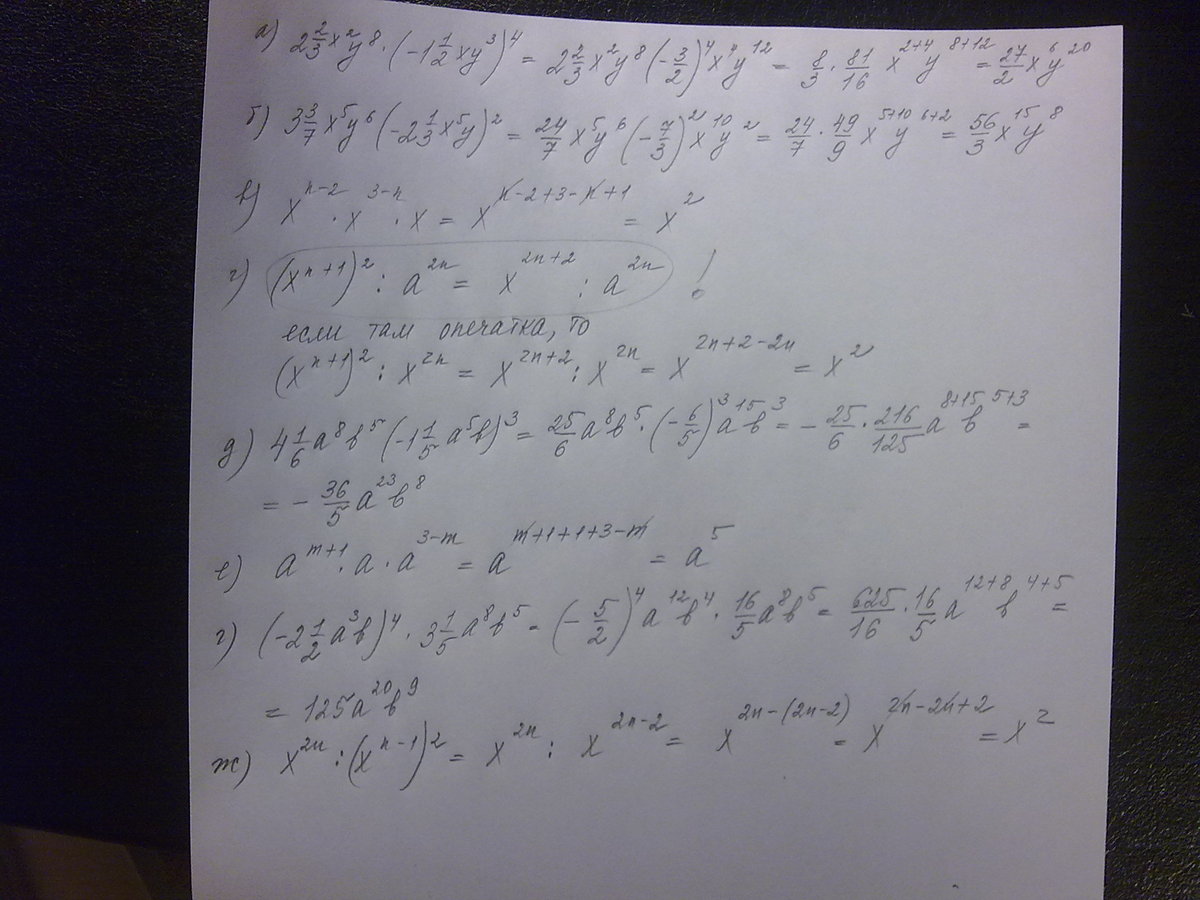 а) 2 2/3 x²y⁸ · (-1 1/2 xy³)⁴ = 2 2/3 x²y⁸ (-3/2)⁴ x⁴y¹² = 8/3 · 81/16 x²⁺⁴ y⁸⁺¹² = 27/2 x⁶y²⁰
б) 3 3/7 x⁵y⁶ (-2 1/3 x⁵y)² = 24/7 x⁵y⁶ (-7/3)² x¹⁰y² = 24/7 · 49/9 x⁵⁺¹⁰ y⁶⁺² = 56/3 x¹⁵y⁸
в) xⁿ⁻² · x³⁻ⁿ · x = xⁿ⁻²⁺³⁻ⁿ⁺¹ = x²
г) (xⁿ⁺¹)² : a²ⁿ = x²ⁿ⁺² : a²ⁿ !
если там опечатка, то
(xⁿ⁺¹)² : x²ⁿ = x²ⁿ⁺² : x²ⁿ = x²ⁿ⁺²⁻²ⁿ = x²
д) 4 1/6 a⁸b⁵ (-1 1/5 a⁵b)³ = 25/6 a⁸b⁵ · (-6/5)³ a¹⁵b³ = - 25/6 · 216/125 a⁸⁺¹⁵ b⁵⁺³ =
= - 36/5 a²³b⁸
е) aᵐ⁺¹ · a · a³⁻ᵐ = aᵐ⁺¹⁺¹⁺³⁻ᵐ = a⁵
г) (-2 1/2 a³b)⁴ · 3 1/5 a⁸b⁵ = (-5/2)⁴ a¹²b⁴ · 16/5 a⁸b⁵ = 625/16 · 16/5 a¹²⁺⁸ b⁴⁺⁵ =
= 125a²⁰b⁹
ж) x²ⁿ : (xⁿ⁻¹)² = x²ⁿ : x²ⁿ⁻² = x²ⁿ⁻⁽²ⁿ⁻²⁾ = x²ⁿ⁻²ⁿ⁺² = x²